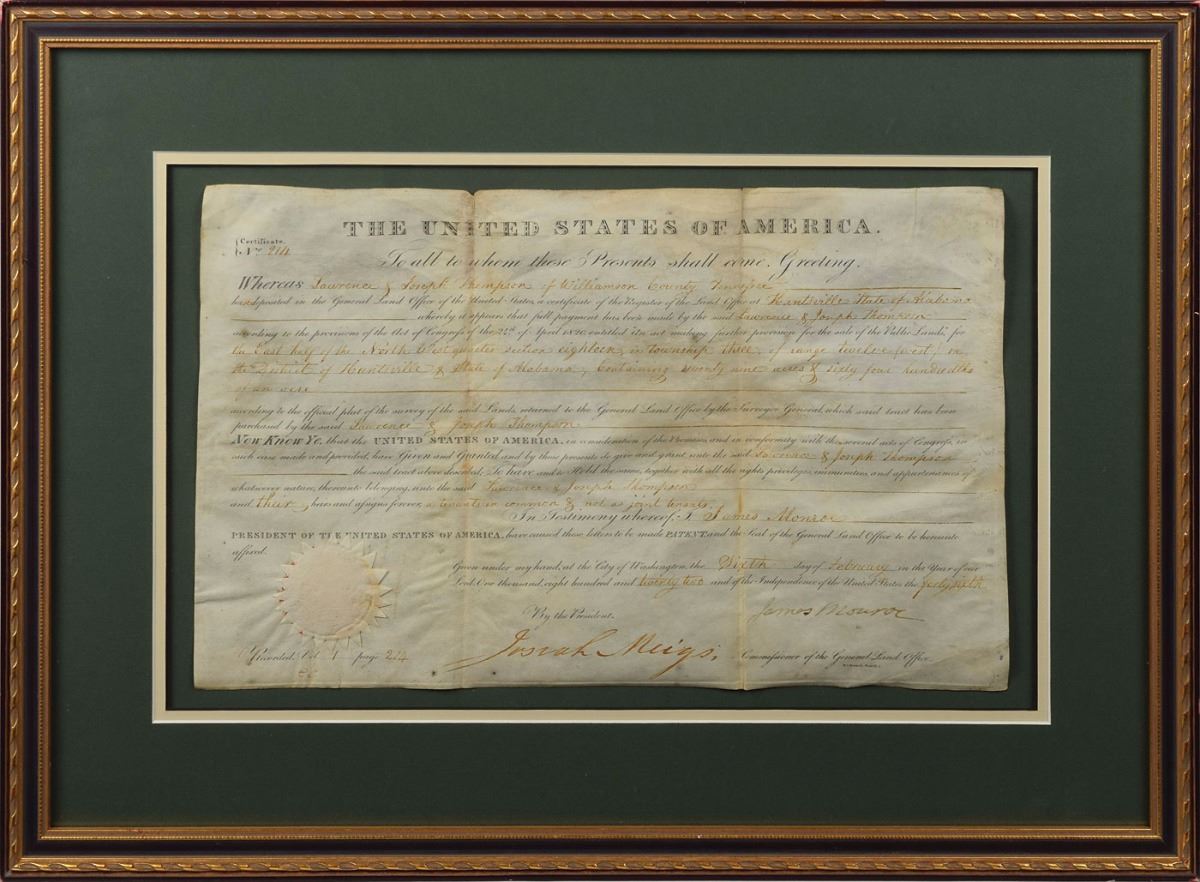 THE UNITED STATES OF AMERICA.
Certificate.
No. 214
To all to whom these Presents shall come, Greeting.
Whereas Lawrence & Joseph Thompson of Williamson County Tennessee
deposited in the General Land Office of the United States, a certificate of the Register of the Land Office at Huntsville State of Alabama
whereby it appears that full payment has been made by the said Lawrence & Joseph Thompson
according to the provisions of the Act of Congress of the 24th of April 1820, entitled "An act making further provision for the sale of the Public Lands," for
the East half of the North West quarter section eighteen, in township three, of range twelve west, in
the District of Huntsville & State of Alabama, Containing seventy nine acres & sixty four hundredths
of an acre
according to the official plat of the survey of the said Lands, returned to the General Land Office by the Surveyor General, which said tract has been
purchased by the said Lawrence & Joseph Thompson
Now Know Ye, that the UNITED STATES OF AMERICA, in consideration of the Premises, and in conformity with the several acts of Congress, in
such case made and provided, have Given and Granted, and by these presents do give and grant, unto the said Lawrence & Joseph Thompson
the said tract above described; To have and to Hold the same, together with all the rights, privileges, immunities, and appurtenances of
whatsoever nature, thereunto belonging, unto the said Lawrence & Joseph Thompson
and their heirs and assigns forever, as tenants in common & not as joint tenants.
In Testimony whereof, I, James Monroe
PRESIDENT OF THE UNITED STATES OF AMERICA, have caused these letters to be made PATENT, and the Seal of the General Land Office to be hereunto
affixed.
Given under my hand, at the City of Washington, the Sixth day of February in the Year of our
Lord One thousand, eight hundred and twenty two and of the Independence of the United States the forty sixth
By the President.
James Monroe
Josiah Meigs, Commissioner of the General Land Office.
Recorded, Vol. 1 page 214